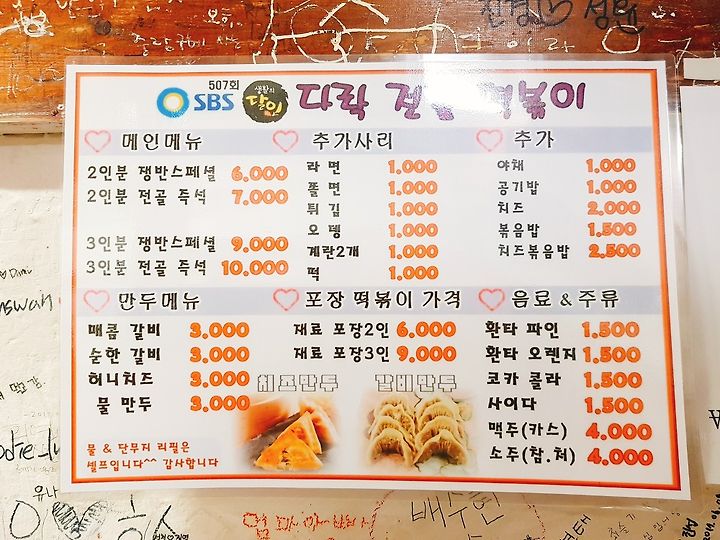 507회
SBS 생활의 달인 다락 전골 떡볶이
메인메뉴
2인분 쟁반스페셜 6.000
2인분 전골 즉석 7.000
3인분 쟁반스페셜 9.000
3인분 전골 즉석 10.000
추가사리
라면 1.000
쫄면 1.000
튀김 1.000
오뎅 1.000
계란2개 1.000
떡 1.000
추가
야채 1.000
공기밥 1.000
치즈 2.000
볶음밥 1.500
치즈볶음밥 2.500
만두메뉴
매콤 갈비 3.000
순한 갈비 3.000
허니치즈 3.000
물 만두 3.000
물 & 단무지 리필은
셀프입니다^^ 감사합니다
포장 떡볶이 가격
재료 포장2인 6.000
재료 포장3인 9.000
치즈만두 갈비만두
음료 & 주류
환타 파인 1.500
환타 오렌지 1.500
코카 콜라 1.500
사이다 1.500
맥주(카스) 4.000
소주(참.처) 4.000
유나
배수현